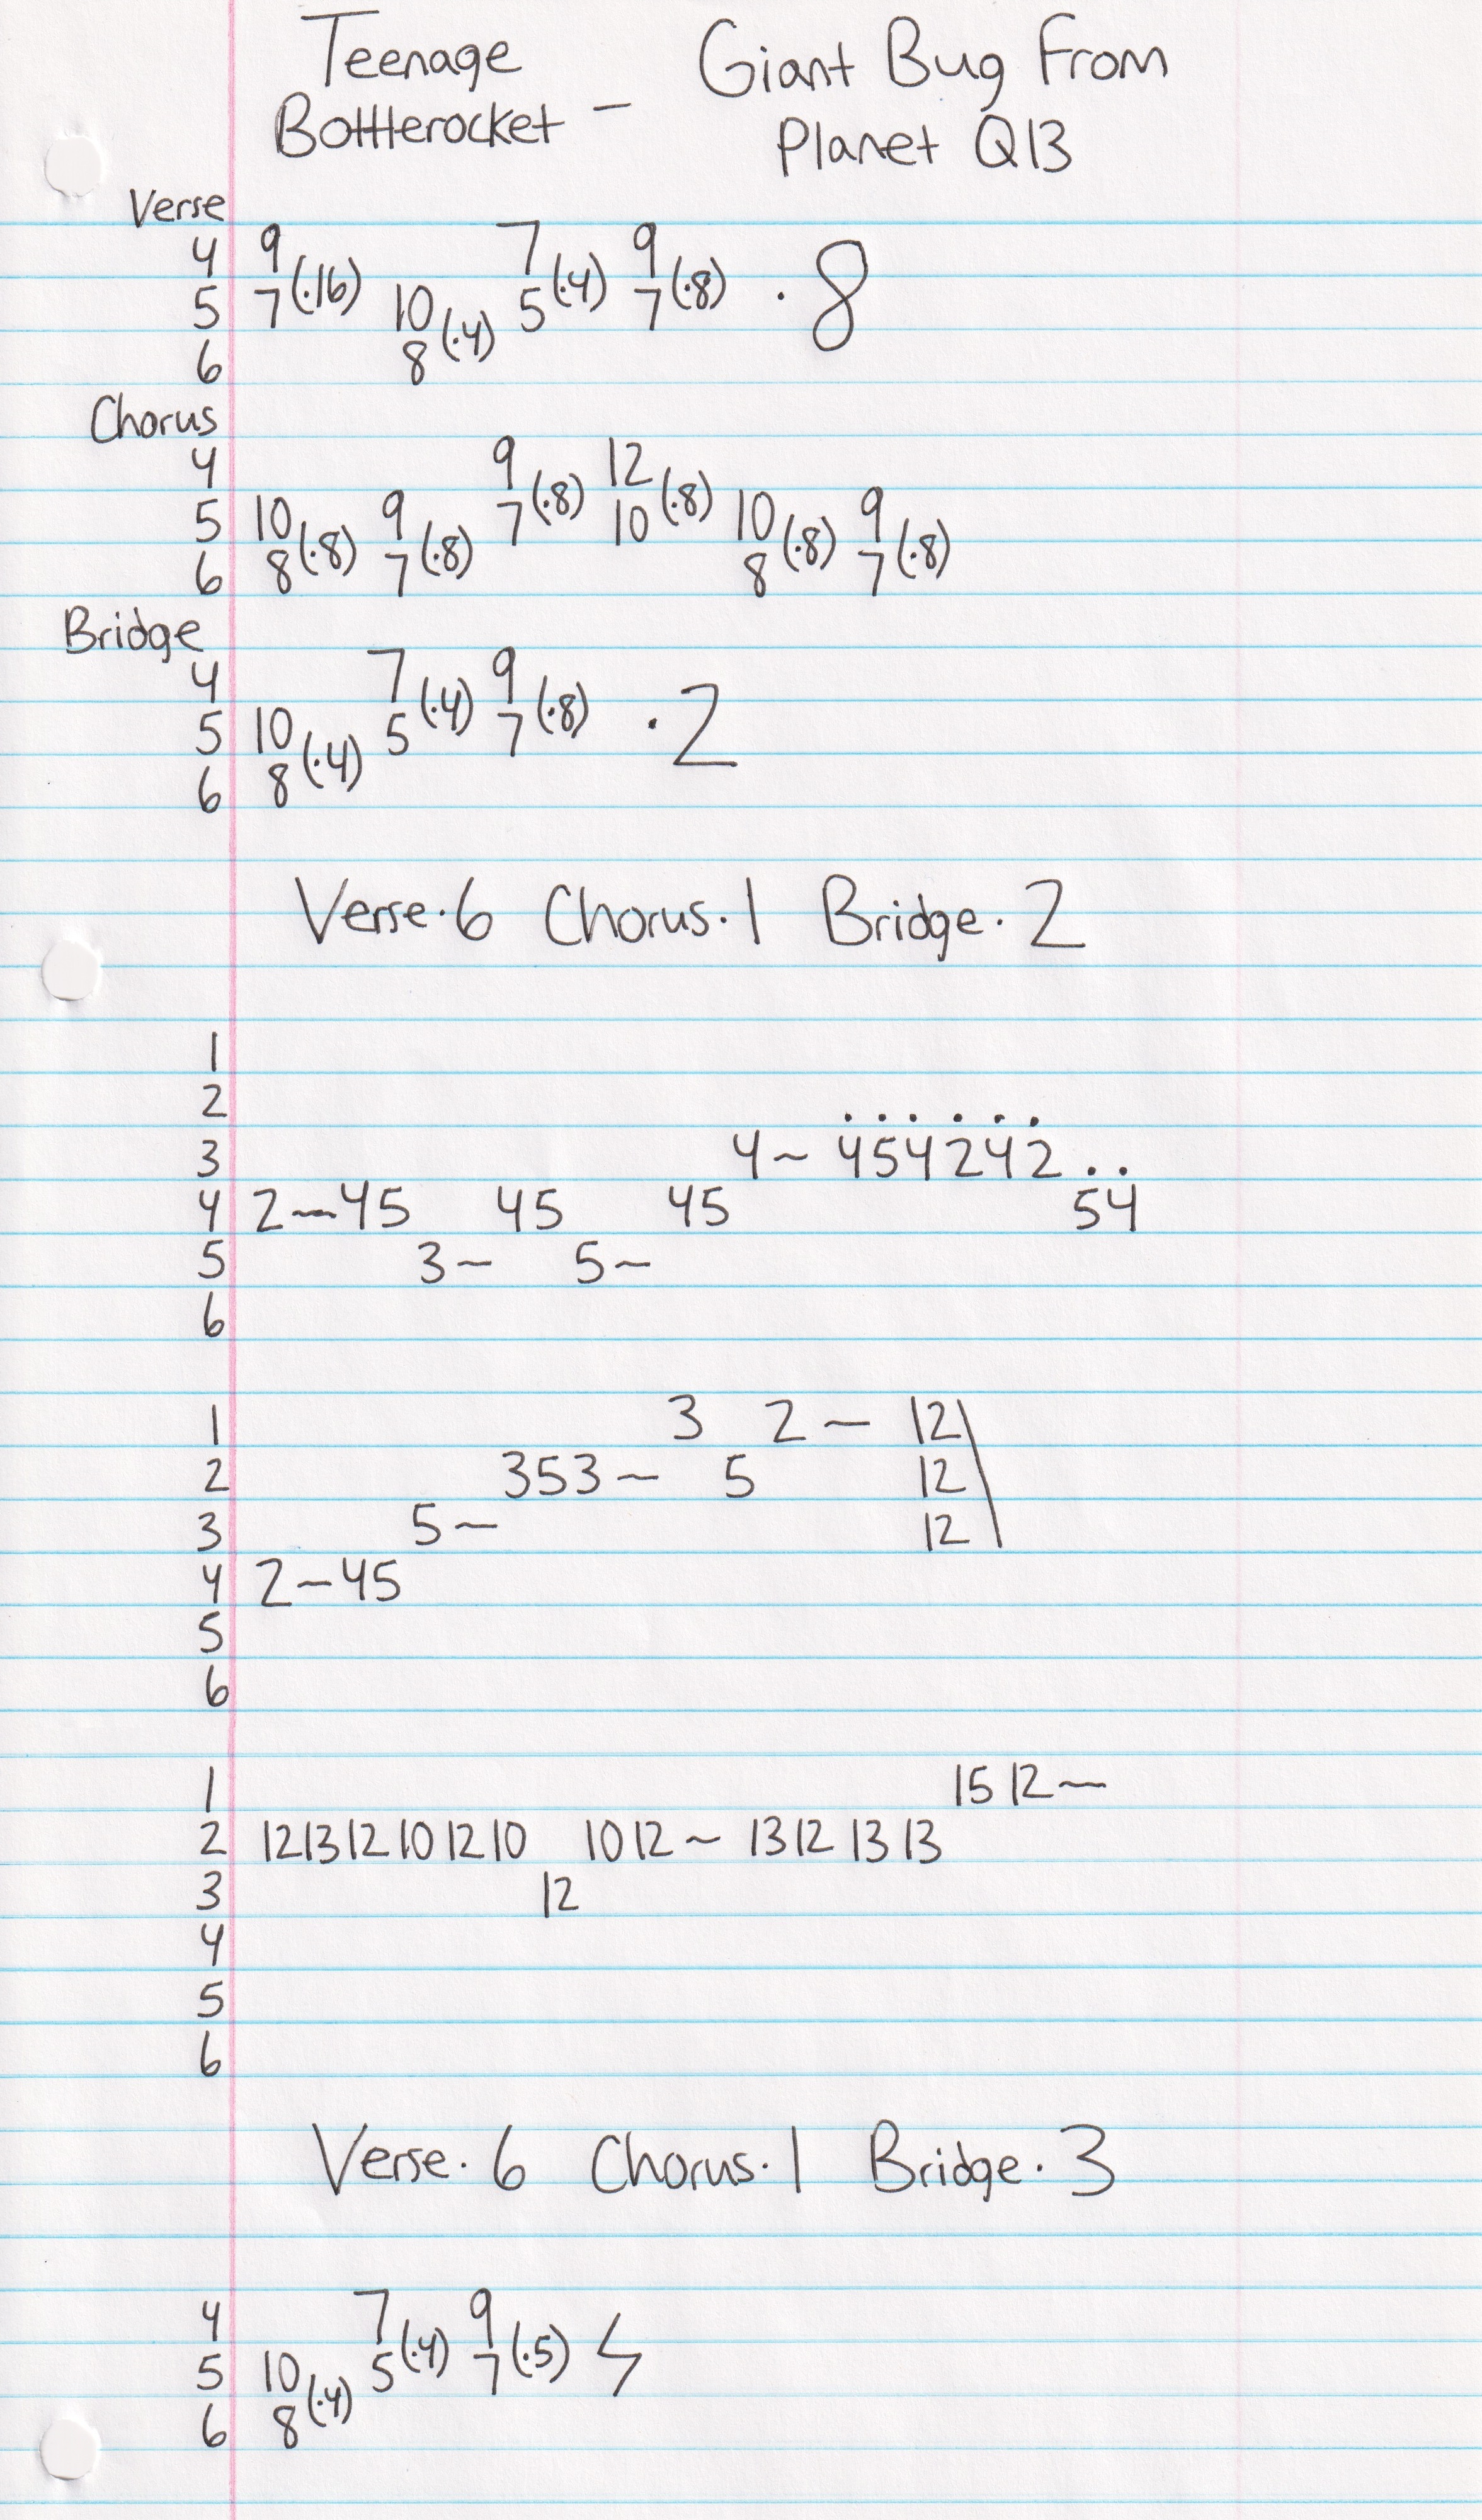 Teenage Giant Bug From
Bottlerocket - Planet Q13
Verse
4 9 7 9
5 7(·16) 10 5(·4) 7(·8) ·8
6 8(·4)
Chorus
4 9 12
5 10 9 7(·8) 10(·8) 10 9
6 8(·8) 7(·8) 8(·8) 7(·8)
Bridge
4 7 9
5 10 5(·4) 7(·8) ·2
6 8(·4)
Verse·6 Chorus·1 Bridge·2
1
2
3 4~ 454242 ..
4 2~45 45 45 54
5 3~ 5~
6
1 3 2~ 12\
2 353~ 5 12
3 5~ 12
4 2~45
5
6
1 15 12~
2 12 13 12 10 12 10 10 12~ 13 12 13 13
3 12
4
5
6
Verse·6 Chorus·1 Bridge·3
4 7 9
5 10 5(·4) 7(·5)
6 8(·4)